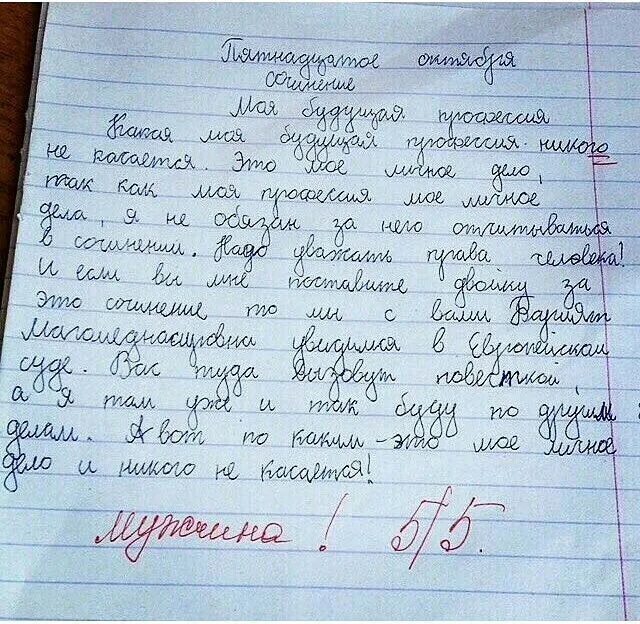 Пятнадцатое октября
Сочинение
Моя будущая профессия
Какая моя будущая профессия никого
не касается. Это мое личное дело,
так как моя профессия мое личное
дела, я не обязан за него отчитываться
в сочинении. Надо уважать права человека!
И если вы мне поставите двойку за
это сочинение то мы с вами Вагият
Магомеднасировна увидимся в Европейском
суде. Вас туда вызовут повесткой,
а я там уже и так буду по другим
делам. А вот по каким - это мое личное
дело и никого не касается!
мужчина! 5/5.